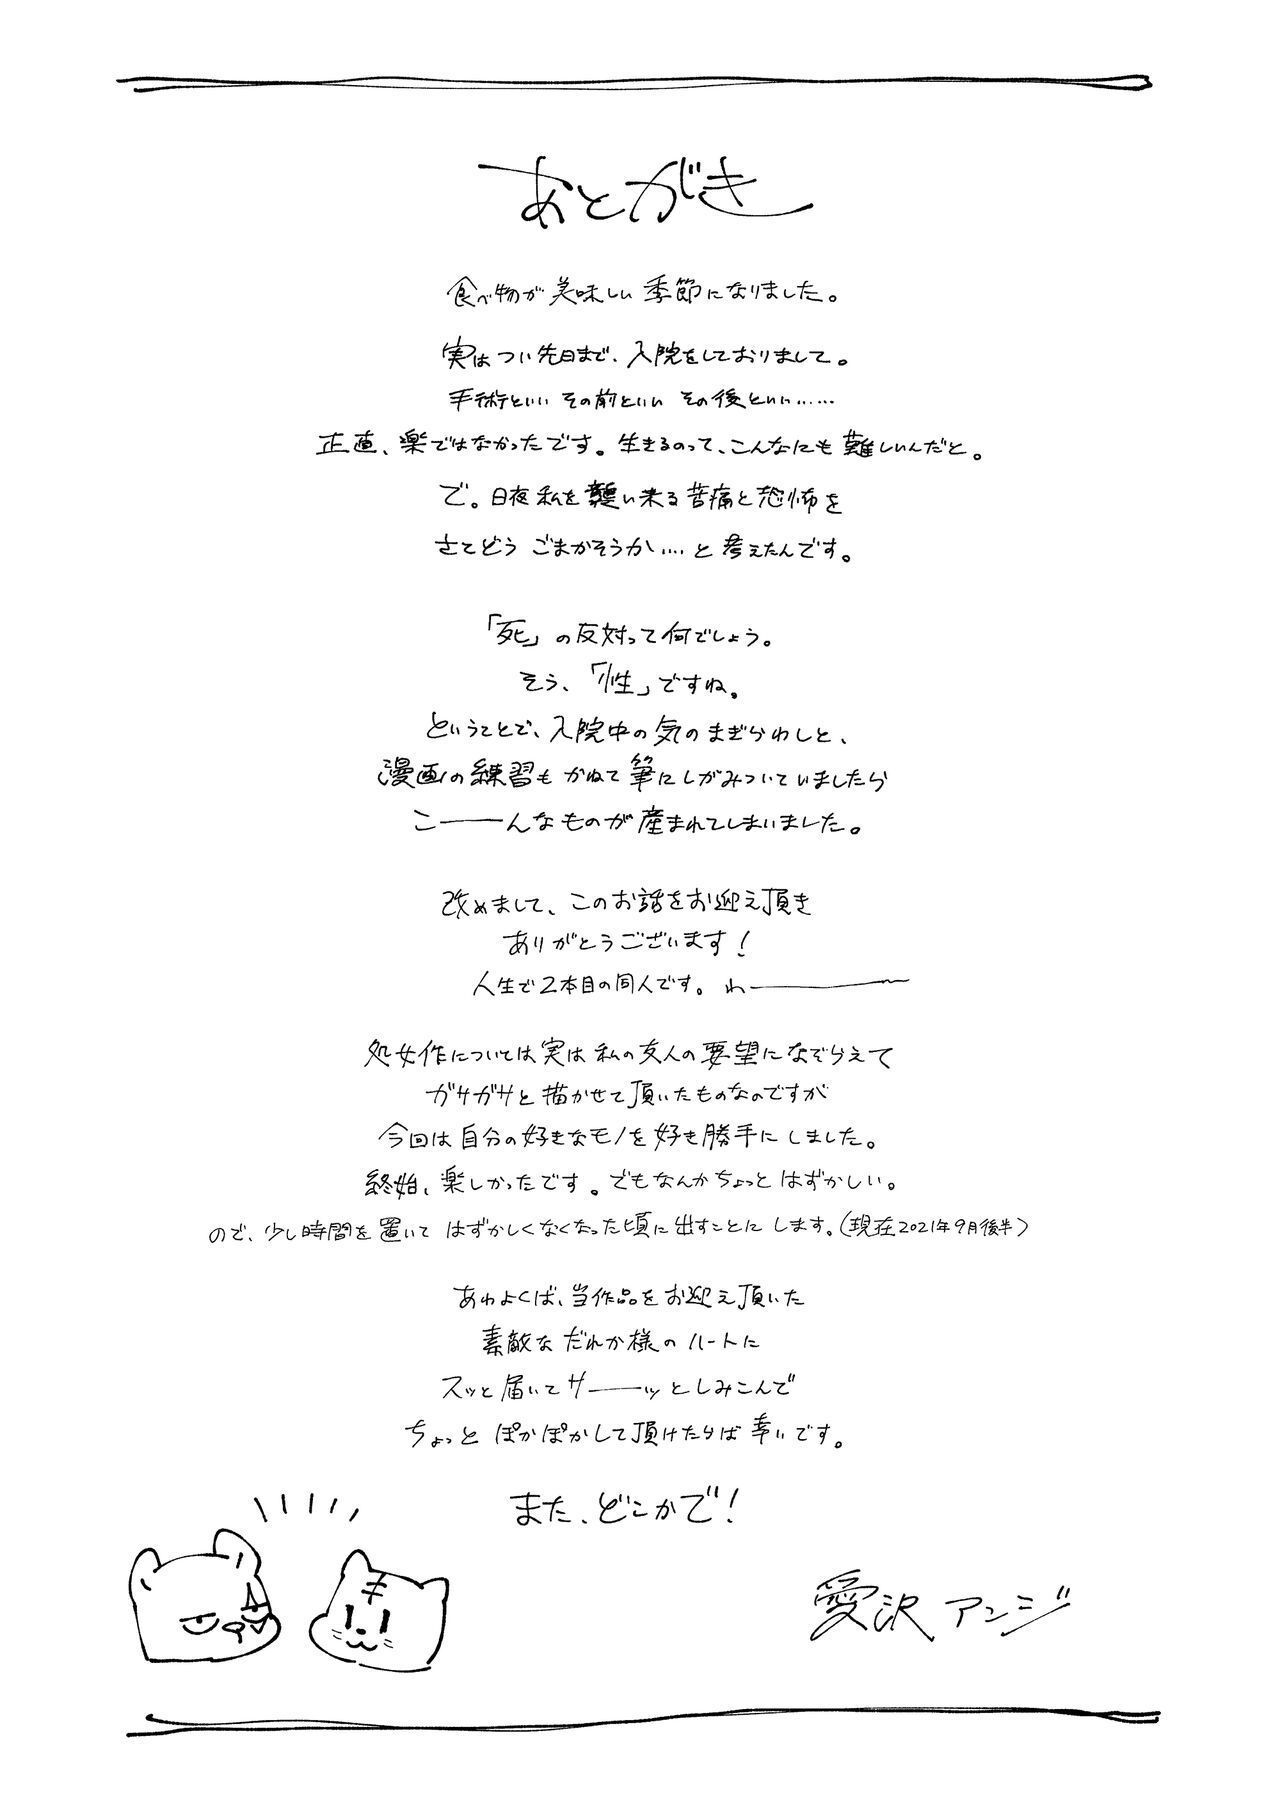 あとがき
食べ物が美味しい季節になりました。
実はつい先日まで、入院をしておりまして。
手術といい その前といい その後といい……
正直、楽ではなかったです。生きるのって、こんなにも難しいんだと。
で。日夜私を襲い来る苦痛と恐怖を
さてどう ごまかそうか…. と考えたんです。
「死」の反対って何でしょう。
そう、「性」ですね。
ということで、入院中の気のまぎらわしと、
漫画の練習もかねて筆にしがみついていましたら
こ――んなものが産まれてしまいました。
改めまして、このお話をお迎え頂き
ありがとうございます!
人生で2本目の同人です。 わ―――
処女作については実は私の友人の要望になぞらえて
ガサガサと描かせて頂いたものなのですが
今回は自分の好きなモノを好き勝手にしました。
終始、楽しかったです。でもなんかちょっとはずかしい。
ので、少し時間を置いて はずかしくなくなった頃に出すことにします。(現在2021年9月後半)
あわよくば、当作品をお迎え頂いた
素敵なだれか様のハートに
スッと届いてサ――ッとしみこんで
ちょっと ぽかぽかして頂けたらば幸いです。
また、どこかで!
愛沢アンジ